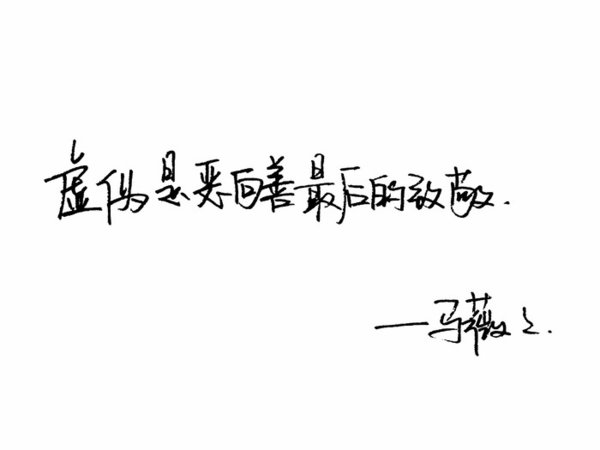 虚伪是恶向善最后的致敬.
——马薇之.